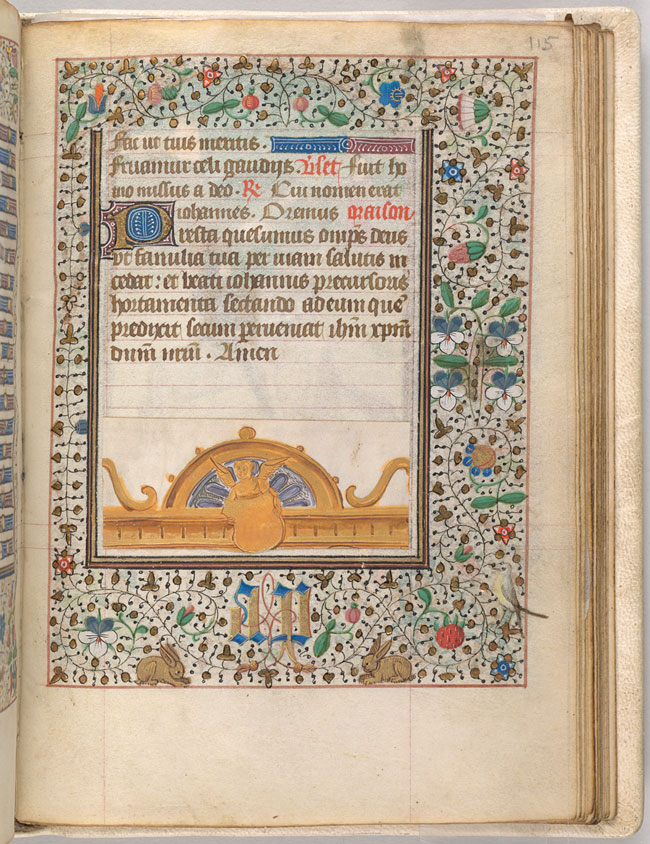 115
fac ut tuis meritis.
fruamur celi gaudijs Vset fuit ho
mo missus a deo. R. Cui nomen erat
iohannes. Oremus oraison.
Presta quesumus omps deus
vt familia tua per viam salutis in
cedat: et beati iohannis precursoris
hortamenta sectando ad eum quē
predixit secum perueniat ihm xpm
dnm nrm. Amen